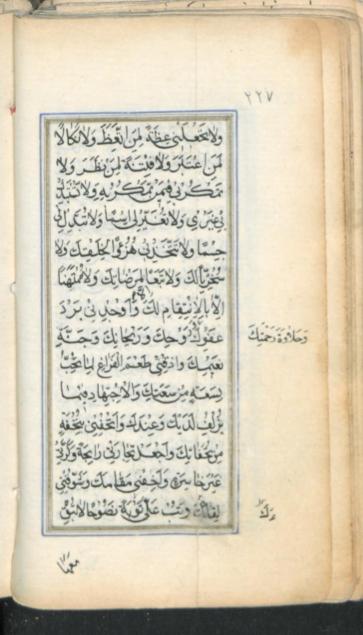 ٢٢٧
ولا تجعلني عظة لمن اتعظ ولا نكالا
لمن اعتبر ولا فتنة لمن نظر ولا
تمكر بي فيمن تمكر به ولا تستبدل
بي غيري ولا تغير لي اسما ولا تبدل لي
جسما ولا تتخذني هزوا لخلقك ولا
سخريا لك ولا تبعا لمرضاتك ولا ممتهنا
إلا بالانتقام لك وأوجدني برد
عفوك وروحك وريحانك وجنة
وحلاوة رحمتك
نعيمك وأذقني طعم الفراغ لما تحب
بسعة من سعتك والاجتهاد فيما
يزلف لديك وعندك وأتحفني بتحفة
من تحفاتك واجعل تجارتي رابحة وكرتي
غير خاسرة وأخفني مقامك وشوقني
لقاءك وتب علي توبة نصوحا لا تبق
معها